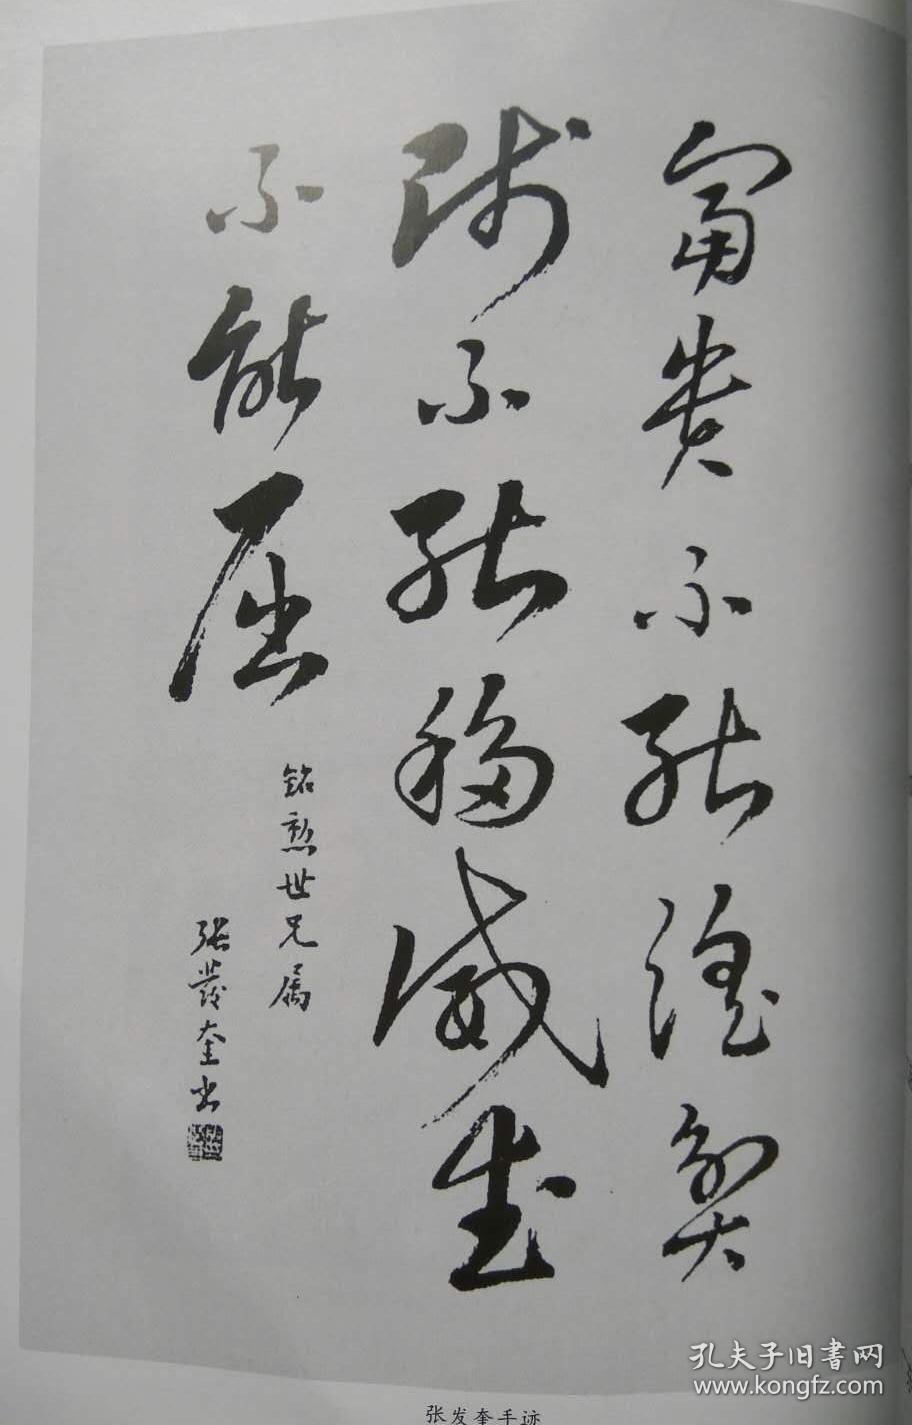 富貴不能淫貧
賤不能移威武
不能屈
銘勲世兄属
張發奎书
张发奎手迹
孔夫子旧书网
www.kongfz.com